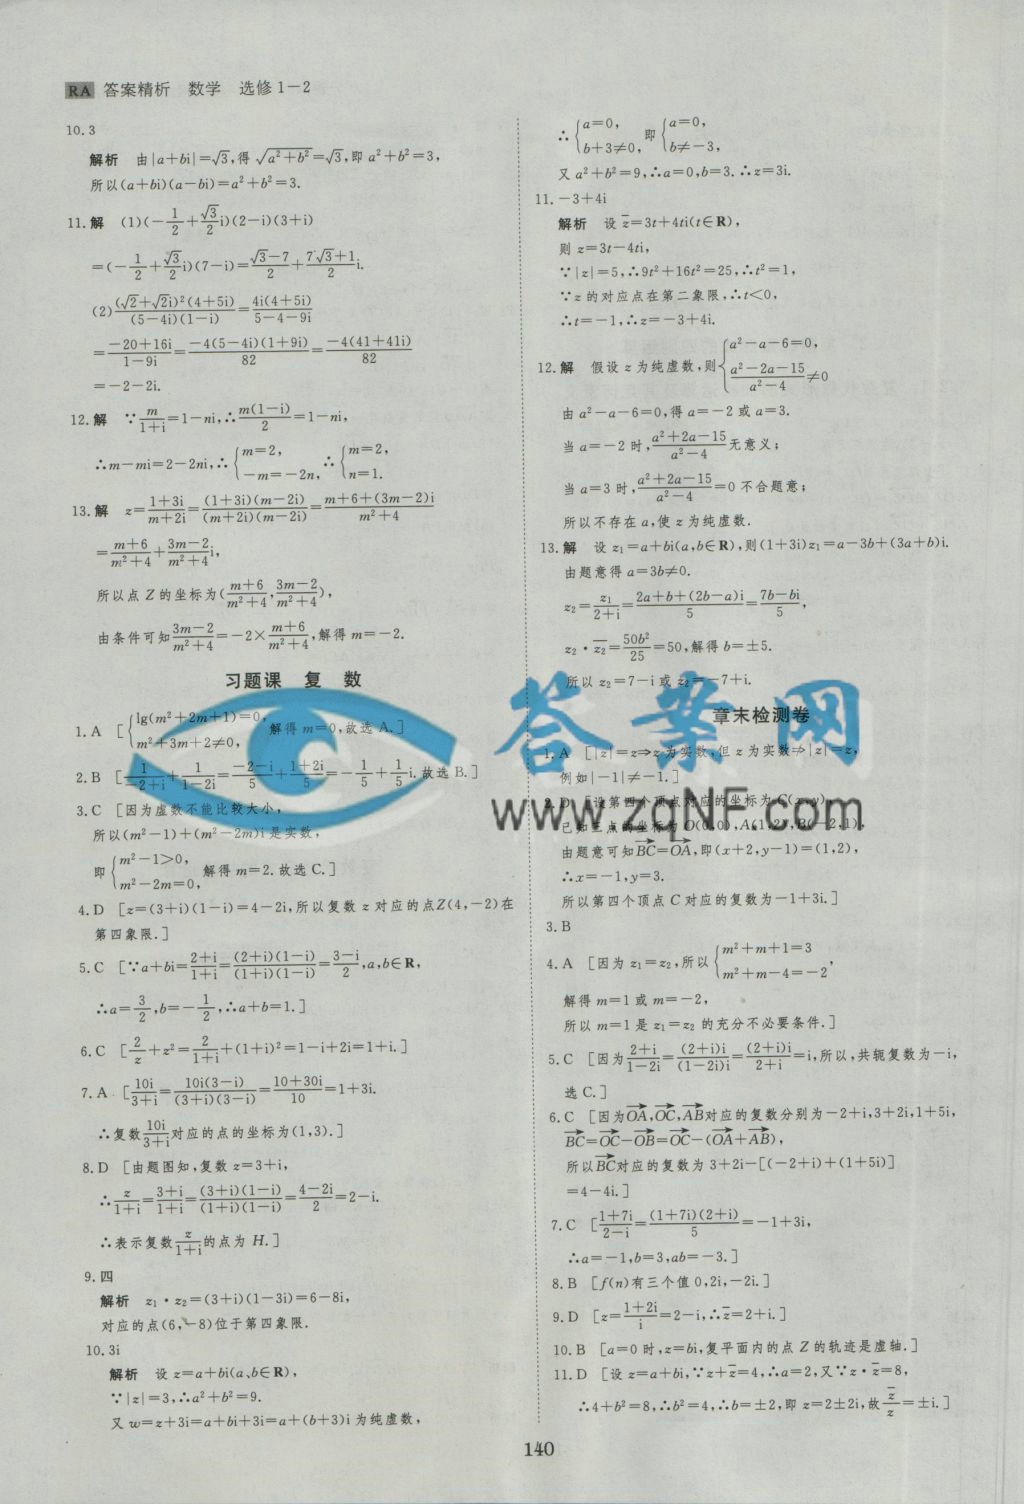 RA 答案精析 数学 选修1-2
10.3
解析 由|a+bi|=√3,得√(a²+b²)=√3,即a²+b²=3,
所以(a+bi)(a-bi)=a²+b²=3.
11.解 (1)(-1/2+√3/2 i)(2-i)(3+i)
=(-1/2+√3/2 i)(7-i)=(√3-7)/2+(7√3+1)/2 i.
(2)(√2+√2i)²(4+5i)/(5-4i)(1-i)=4i(4+5i)/(5-4-9i)
=(-20+16i)/(1-9i)=-4(5-4i)(1+9i)/82=-4(41+41i)/82
=-2-2i.
12.解 ∵m/(1+i)=1-ni,∴m(1-i)/2=1-ni,
∴m-mi=2-2ni,∴{m=2, -m=-2n, ∴{m=2, n=1.
13.解 z=(1+3i)/(m+2i)=(1+3i)(m-2i)/(m+2i)(m-2i)=(m+6+(3m-2)i)/(m²+4)
=(m+6)/(m²+4)+(3m-2)/(m²+4)i,
所以点Z的坐标为((m+6)/(m²+4),(3m-2)/(m²+4)),
由条件可知(3m-2)/(m²+4)=-2×(m+6)/(m²+4),解得m=-2.
习题课 复 数
1.A [{lg(m²+2m+1)=0, m²+3m+2≠0, 解得m=0,故选A.]
2.B [1/(-2+i)+1/(1-2i)=(-2-i)/5+(1+2i)/5=-1/5+1/5 i.故选B.]
3.C [因为虚数不能比较大小,
所以(m²-1)+(m²-2m)i是实数,
即{m²-1>0, m²-2m=0, 解得m=2.故选C.]
4.D [z=(3+i)(1-i)=4-2i,所以复数z对应的点Z(4,-2)在
第四象限.]
5.C [∵a+bi=(2+i)/(1+i)=(2+i)(1-i)/(1+i)(1-i)=(3-i)/2,a,b∈R,
∴a=3/2,b=-1/2,∴a+b=1.]
6.C [2/z+z²=2/(1+i)+(1+i)²=1-i+2i=1+i.]
7.A [10i/(3+i)=10i(3-i)/(3+i)(3-i)=(10+30i)/10=1+3i.
∴复数10i/(3+i)对应的点的坐标为(1,3).]
8.D [由题图知,复数z=3+i,
∴z/(1+i)=(3+i)/(1+i)=(3+i)(1-i)/(1+i)(1-i)=(4-2i)/2=2-i.
∴表示复数z/(1+i)的点为H.]
9.四
解析 z₁·z₂=(3+i)(1-3i)=6-8i,
对应的点(6,-8)位于第四象限.
10.3i
解析 设z=a+bi(a、b∈R),
∵|z|=3,∴a²+b²=9.
又w=z+3i=a+bi+3i=a+(b+3)i为纯虚数,
∴{a=0, b+3≠0, 即{a=0, b≠-3,
又a²+b²=9,∴a=0,b=3.∴z=3i.
11.-3+4i
解析 设z̄=3t+4ti(t∈R),
则z=3t-4ti,
∵|z|=5,∴9t²+16t²=25,∴t²=1,
∵z的对应点在第二象限,∴t<0,
∴t=-1,∴z=-3+4i.
12.解 假设z为纯虚数,则{a²-a-6=0, (a²-2a-15)/(a²-4)≠0
由a²-a-6=0,得a=-2或a=3.
当a=-2时,(a²+2a-15)/(a²-4)无意义;
当a=3时,(a²+2a-15)/(a²-4)=0不合题意;
所以不存在a,使z为纯虚数.
13.解 设z₁=a+bi(a,b∈R),则(1+3i)z₁=a-3b+(3a+b)i.
由题意得a=3b≠0.
z₂=z₁/(2+i)=(2a+b+(2b-a)i)/5=(7b-bi)/5,
z₂·z̄₂=50b²/25=50,解得b=±5.
所以z₂=7-i或z₂=-7+i.
章末检测卷
1.A [|z|=z⇒z为实数,但z为实数⇏|z|=z,
例如|-1|≠-1.]
2.D [设第四个顶点对应的坐标为C(x,y),
已知三点的坐标为O(0,0),A(1,2),B(-2,1),
由题意可知BC→=OA→,即(x+2,y-1)=(1,2),
∴x=-1,y=3.
所以第四个顶点C对应的复数为-1+3i.]
3.B
4.A [因为z₁=z₂,所以{m²+m+1=3 m²+m-4=-2,
解得m=1或m=-2,
所以m=1是z₁=z₂的充分不必要条件.]
5.C [因为(2+i)/(1-2i)=(2+i)i/(1-2i)i=(2+i)i/(2+i)=i,所以,共轭复数为-i,
选C.]
6.C [因为OA→,OC→,AB→对应的复数分别为-2+i,3+2i,1+5i,
BC→=OC→-OB→=OC→-(OA→+AB→),
所以BC→对应的复数为3+2i-[(-2+i)+(1+5i)]
=4-4i.]
7.C [(1+7i)/(2-i)=(1+7i)(2+i)/5=-1+3i,
∴a=-1,b=3,ab=-3.]
8.B [f(n)有三个值0,2i,-2i.]
9.D [z=(1+2i)/i=2-i,∴z̄=2+i.]
10.B [a=0时,z=bi,复平面内的点Z的轨迹是虚轴.]
11.D [设z=a+bi,∵z+z̄=4,∴a=2,又∵z·z̄=8,
∴4+b²=8,∴b²=4,∴b=±2,即z=2±2i,故z̄/z=±i.]
140
答案网
www.zqNF.com